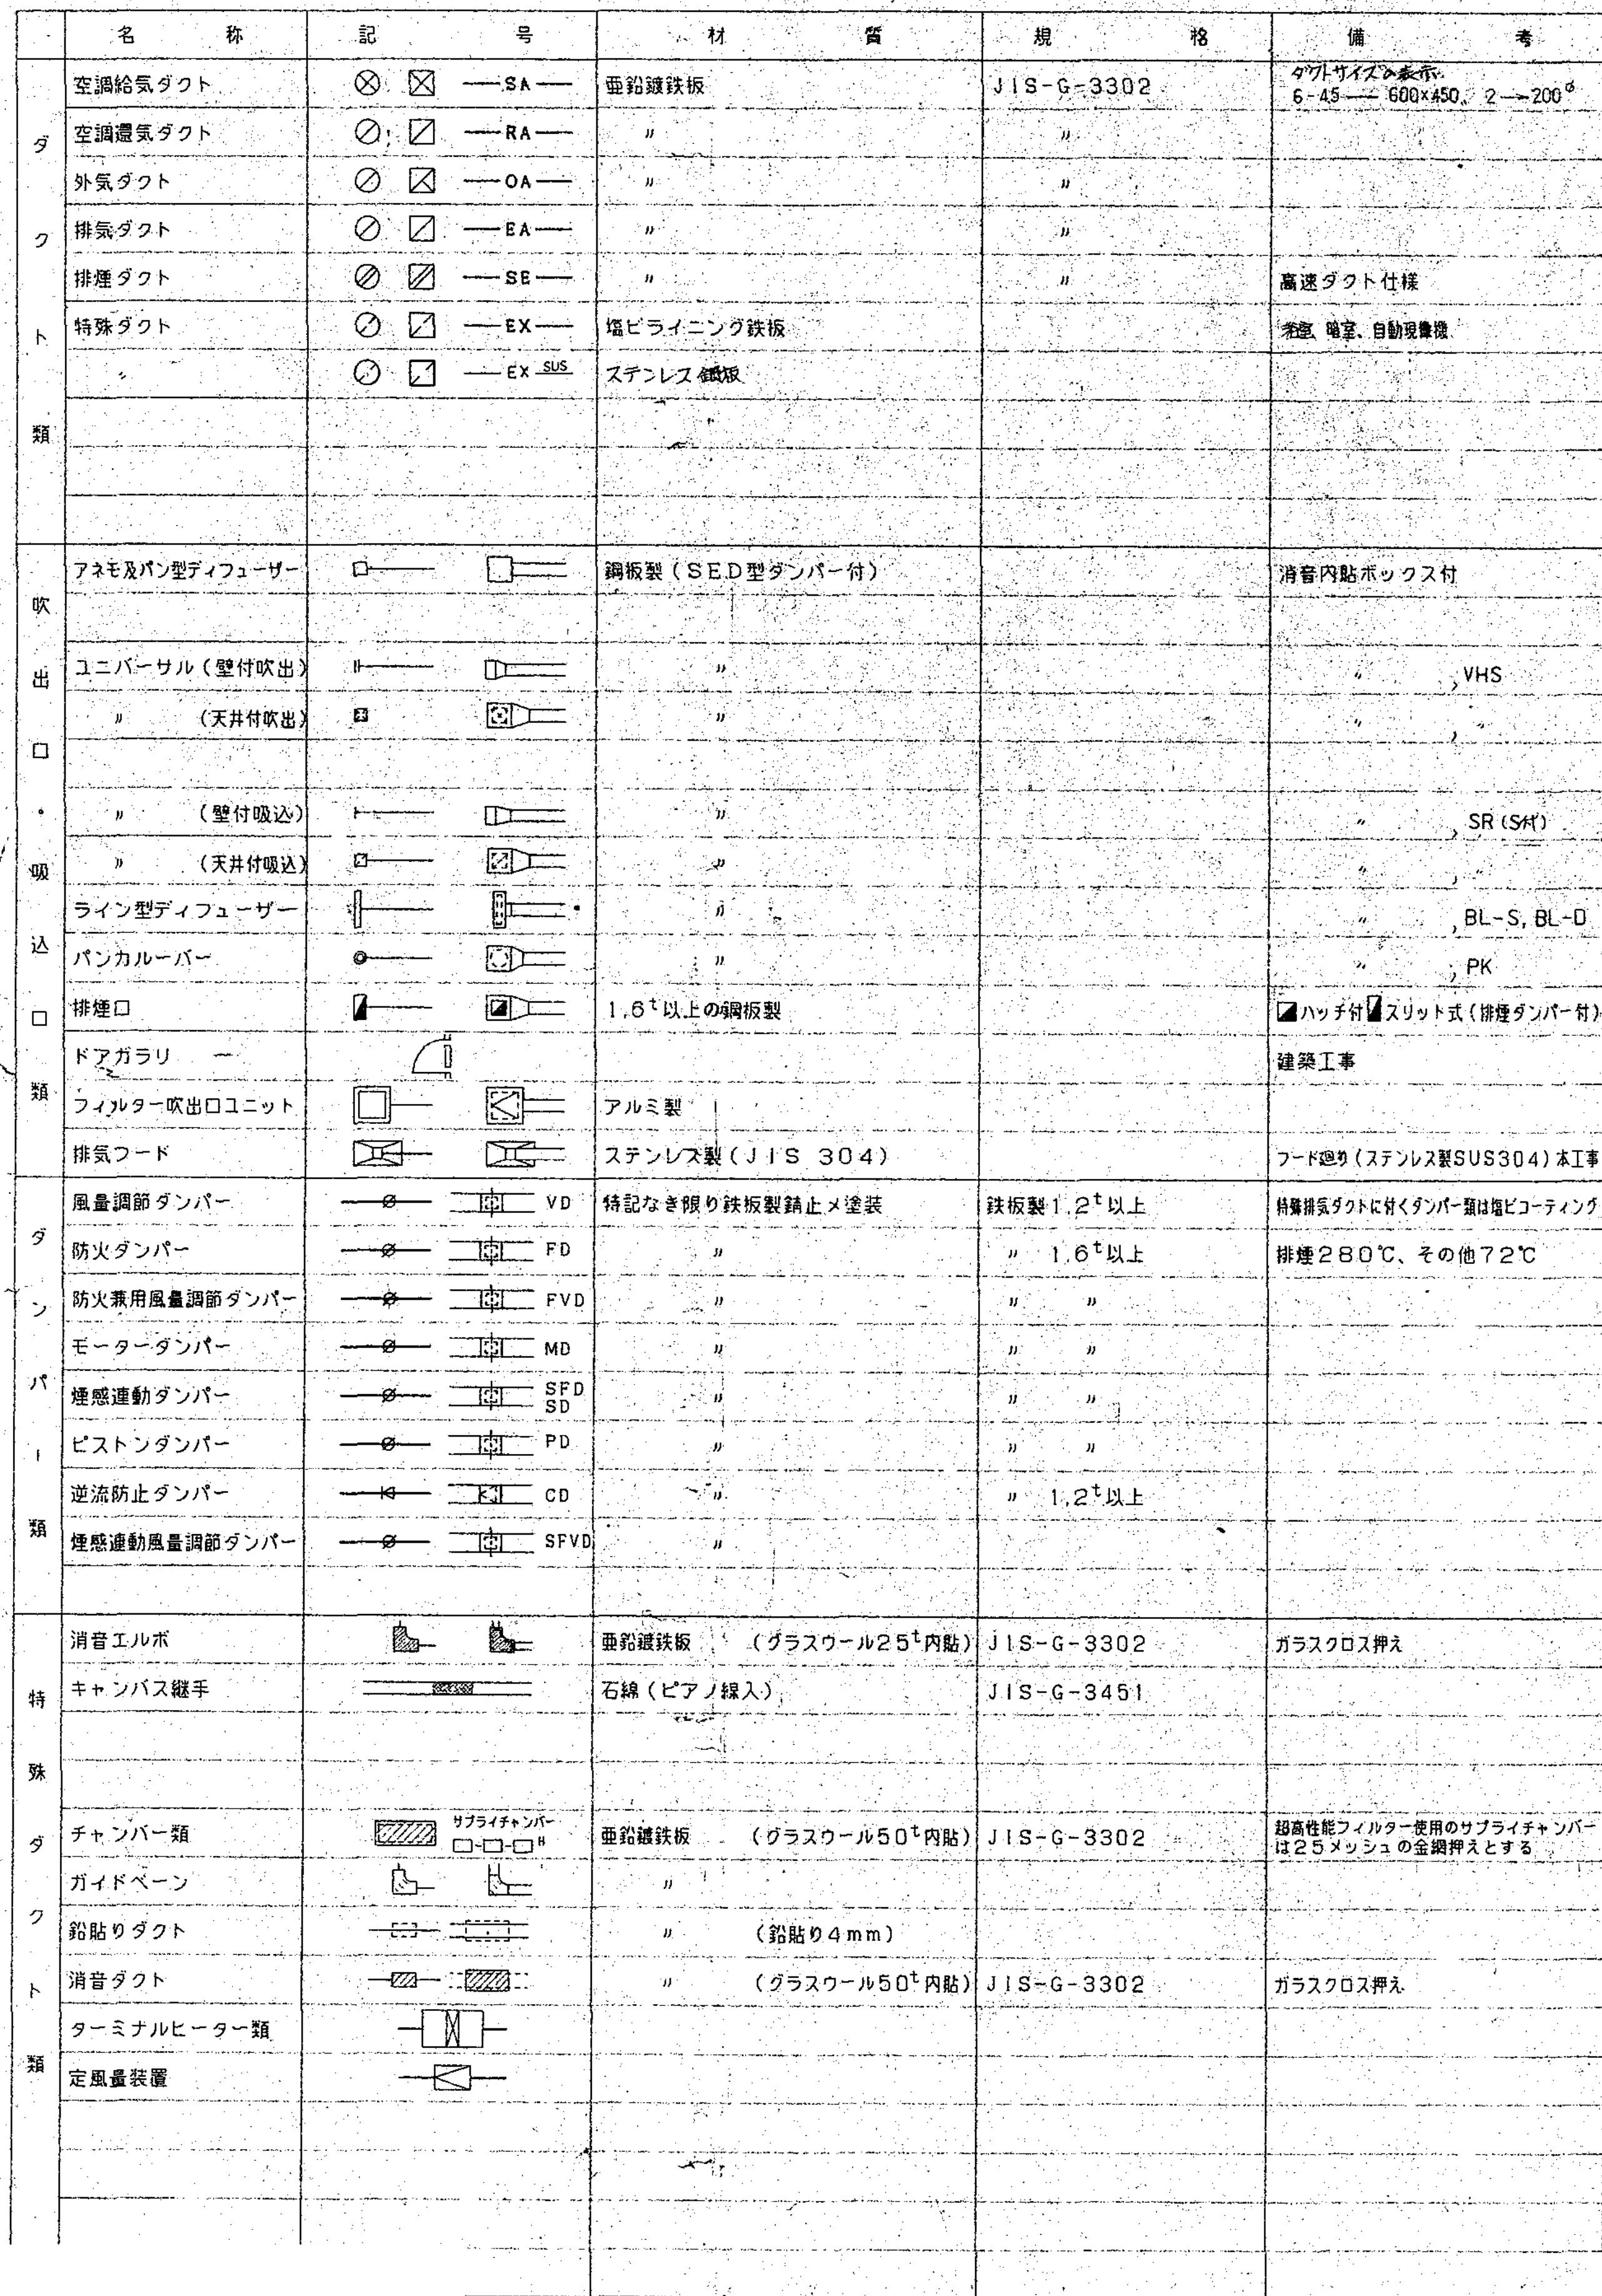 名称 記号 材質 規格 備考
ダクト類
空調給気ダクト SA 亜鉛鍍鉄板 JIS-G-3302 ダクトサイズの表示 6-45 — 600×450, 2 — 200φ
空調還気ダクト RA 〃 〃
外気ダクト OA 〃 〃
排気ダクト EA 〃 〃
排煙ダクト SE 〃 〃 高速ダクト仕様
特殊ダクト EX 塩ビライニング鉄板 暗室、自動現像機
〃 EX SUS ステンレス鋼板
吹出口・吸込口類
アネモ及パン型ディフューザー 鋼板製(SED型ダンパー付) 消音内貼ボックス付
ユニバーサル(壁付吹出) 〃 〃 , VHS
〃 (天井付吹出) 〃 〃 , 〃
〃 (壁付吸込) 〃 〃 , SR(S付)
〃 (天井付吸込) 〃 〃 , 〃
ライン型ディフューザー 〃 〃 , BL-S, BL-D
パンカルーバー 〃 〃 , PK
排煙口 1.6t以上の鋼板製 ハッチ付 スリット式(排煙ダンパー付)
ドアガラリ 建築工事
フィルター吹出口ユニット アルミ製
排気フード ステンレス製(JIS 304) フード廻り(ステンレス製SUS304)本工事
ダンパー類
風量調節ダンパー VD 特記なき限り鉄板製錆止メ塗装 鉄板製1.2t以上 特殊排気ダクトに付くダンパー類は塩ビコーティング
防火ダンパー FD 〃 〃 1.6t以上 排煙280℃、その他72℃
防火兼用風量調節ダンパー FVD 〃 〃 〃
モーターダンパー MD 〃 〃 〃
煙感連動ダンパー SFD SD 〃 〃 〃
ピストンダンパー PD 〃 〃 〃
逆流防止ダンパー CD 〃 〃 1.2t以上
煙感連動風量調節ダンパー SFVD 〃
特殊ダクト類
消音エルボ 亜鉛鍍鉄板 (グラスウール25t内貼) JIS-G-3302 ガラスクロス押え
キャンバス継手 石綿(ピアノ線入) JIS-G-3451
チャンバー類 サプライチャンバー □-□-□H 亜鉛鍍鉄板 (グラスウール50t内貼) JIS-G-3302 超高性能フィルター使用のサプライチャンバー
は25メッシュの金網押えとする
ガイドベーン 〃
鉛貼りダクト 〃 (鉛貼り4mm)
消音ダクト 〃 (グラスウール50t内貼) JIS-G-3302 ガラスクロス押え
ターミナルヒーター類
定風量装置